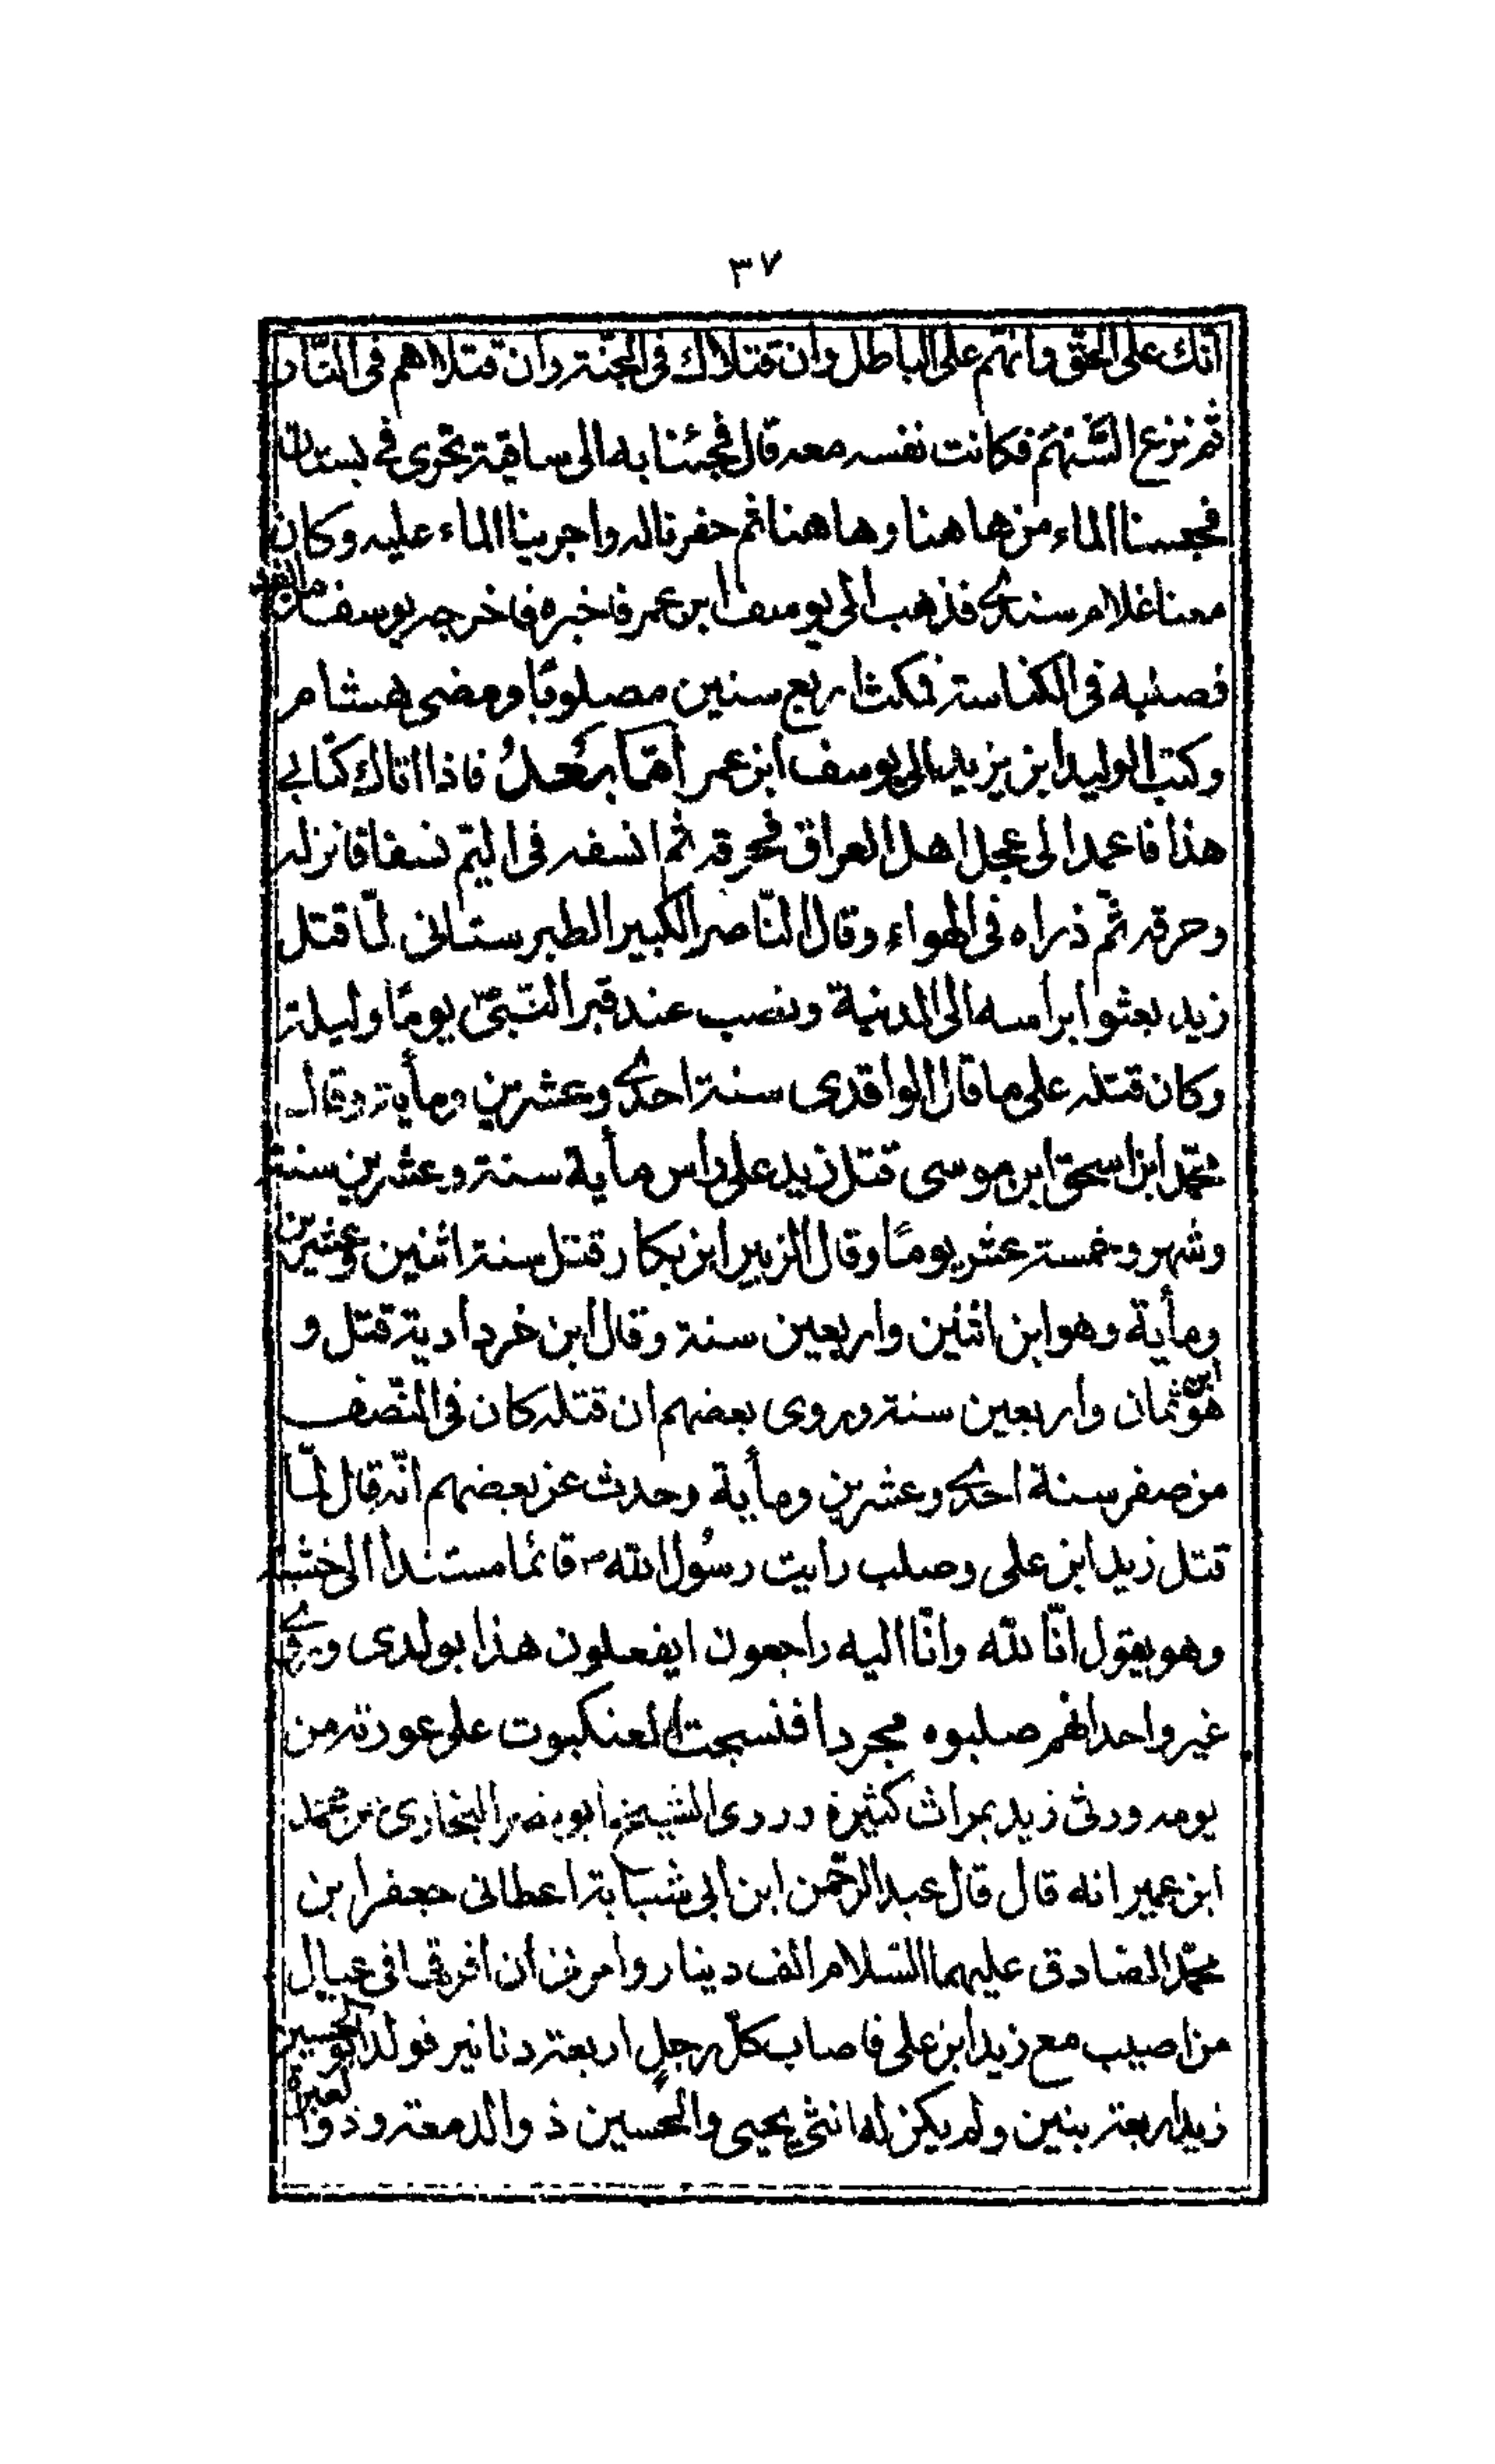 ٣٧
انك على الحق وانهم على الباطل وان قتلاك فى الجنة وان قتلاهم فى النار
ثم نزع السهم فكانت نفسه معه قال فجئنا به الى ساقية تجرى فى بستان
فحبسنا الماء من هاهنا وهاهنا ثم حفرنا له واجرينا الماء عليه وكان
معنا غلام سندى فذهب الى يوسف ابن عمر فاخبره فاخرجه يوسف من الغد
فصلبه فى الكناسة فمكث اربع سنين مصلوبًا ومضى هشام
وكتب الوليد ابن يزيد الى يوسف ابن عمر أمّا بَعدُ فاذا اتاك كتابى
هذا فاعمد الى عجل اهل العراق فحرقه ثم انسفه فى اليم نسفا فانزله
وحرقه ثم ذراه فى الهواء وقال النّاصر الكبير الطبرستانى لمّا قتل
زيد بعثوا براسه الى المدنية ونصب عند قبر النّبىّ يومًا وليلة
وكان قتله على ما قال الواقدى سنة احدى وعشرين ومأية وقال
محمد ابن اسحق ابن موسى قتل زيد على راس مأية سنة وعشرين سنة
وشهر وخمسة عشر يومًا وقال الزبير ابن بكار قتل سنة اثنين وعشرين
ومأية وهو ابن اثنين واربعين سنة وقال ابن خردادية قتل و
هو ابن ثمان واربعين سنة وروى بعضهم ان قتله كان فى النّصف
من صفر سنة احدى وعشرين ومأية وحدث عن بعضهم انّه قال لمّا
قتل زيد ابن على وصلب رايت رسُول الله ص قائما مستندا الى خشبة
وهو يقول انّا لله وانّا اليه راجعون ايفعلون هذا بولدى وروى
غير واحد انهم صلبوه مجردا فنسجت العنكبوت على عورته من
يومه ورثى زيد بمراث كثيرة وروى الشيخ ابو نصر البخارى عن محمد
ابن عمير انه قال قال عبد الرّحمن ابن ابى شبابة اعطانى جعفر ابن
محمّد الصّادق عليهما السّلام الف دينار وامرنى ان افرقها فى عيال
من اصيب مع زيد ابن على فاصاب كلّ رجلٍ اربعة دنانير فولد ابو الحسين
زيد اربعة بنين ولم يكن له انثى يحيى والحسين ذو الدمعة وذو العبرة